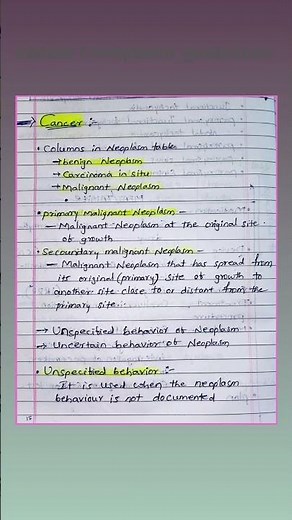 → Cancer :-
• Columns in Neoplasm table
→ benign Neoplasm
→ Carcinoma in situ
→ Malignant Neoplasm
• primary malignant Neoplasm -
- Malignant Neoplasm at the original site
of growth
• Secoundary malignant Neoplasm -
- Malignant Neoplasm that has spread from
its original (primary) site of growth to
another site close to or distant from the
primary site.
→ Unspecified behavior of Neoplasm
→ Uncertain behavior of Neoplasm
• Unspecified behavior :-
It is used when the neoplasm
behaviour is not documented